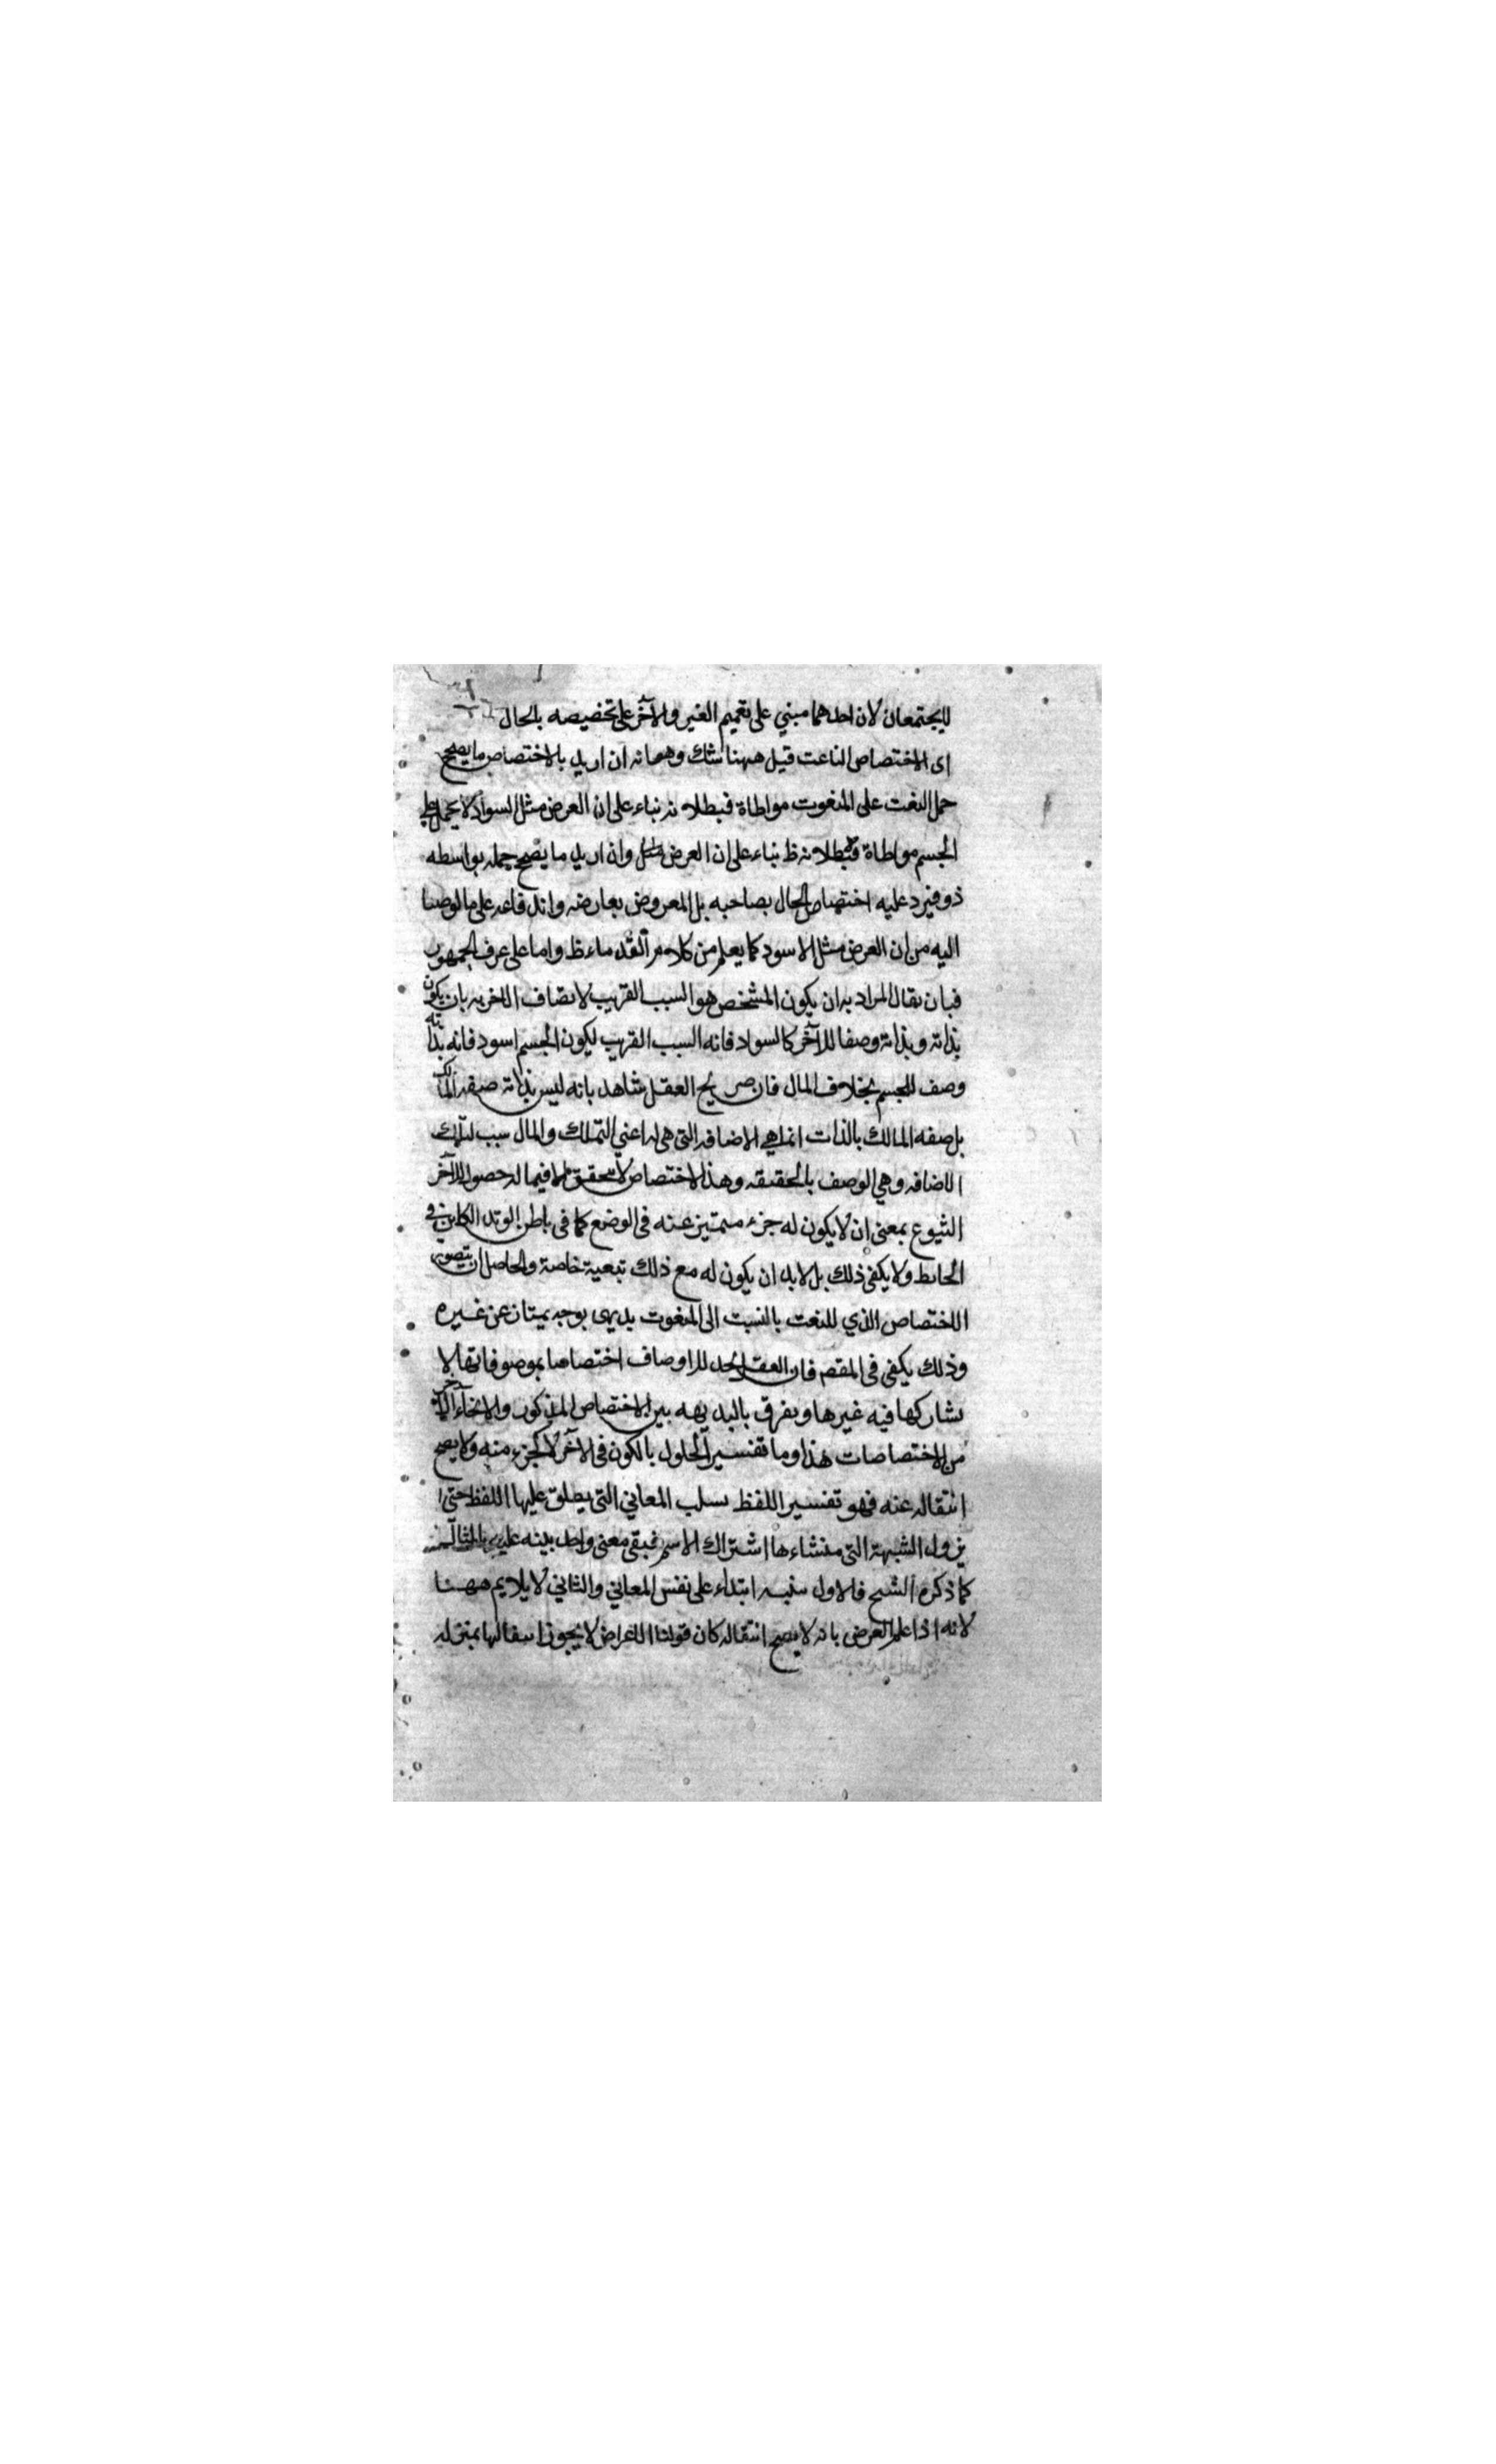 لايجتمعان لان احدهما مبني على تعميم الغير والآخر على تخصيصه بالحال
اى الاختصاص الناعت قيل ههنا شك وهو انه ان اريد بالاختصاص ما يصحح
حمل النعت على المنعوت مواطاة فبطلانه بناء على ان العرض مثل السواد لا يحمل على
الجسم مواطاة فبطلانه ظ بناء على ان العرض وان اريد ما يصحح حمله بواسطه
ذو فيرد عليه اختصاص المال بصاحبه بل المعروض بعارضه واندفاعه على ما لوصنا
اليه من ان العرض مثل الاسود كما يعلم من كلام القدماء ظ واما على عرف الجمهور
فبان يقال المراد به ان يكون المشخص هو السبب القريب لاتصاف الاخر به بان يكون
بذاته وبذاته وصفا للآخر كالسواد فانه السبب القريب ليكون الجسم اسود فانه بذاته
وصف للجسم بخلاف المال فان صريح العقل شاهد بانه ليس بذاته صفه المالك
بل صفه المالك بالذات انما هي الاضافه التى هى له اعني التملك والمال سبب لتلك
الاضافه وهي الوصف بالحقيقه وهذا الاختصاص لا يتحقق الا فيما له حصول للآخر
الشيوع بمعنى ان لا يكون له جزء متميز عنه فى الوضع كما فى باطن الوتد الكاين في
الحايط ولا يكفى ذلك بل لابد ان يكون له مع ذلك تبعية خاصة والحاصل ان تصور
الاختصاص الذي للنعت بالنسبت الى المنعوت بديهى بوجه يمتاز عن غيره
وذلك يكفى فى المقصم فان العقل يجد للاوصاف اختصاصا بموصوفاتها لا
يشاركها فيه غيرها ويفرق بالبديهه بين الاختصاص المذكور والانحاء الاخر
من الاختصاصات هذا وما تفسير الحلول بالكون فى الآخر لا كجزء منه ولا يصح
انتقاله عنه فهو تفسير اللفظ بسلب المعاني التى يطلق عليها اللفظ حتى
يزول الشبهة التى منشاءها اشتراك الاسم فبقى معنى واحد
كما ذكره الشيخ فالاول ابتداء على نفس المعاني والثاني لا يلايم ههنا
لانه اذا علم العرض بانه لا يصح انتقاله كان قولنا الاعراض لا يجوز انتقالها بمنزله